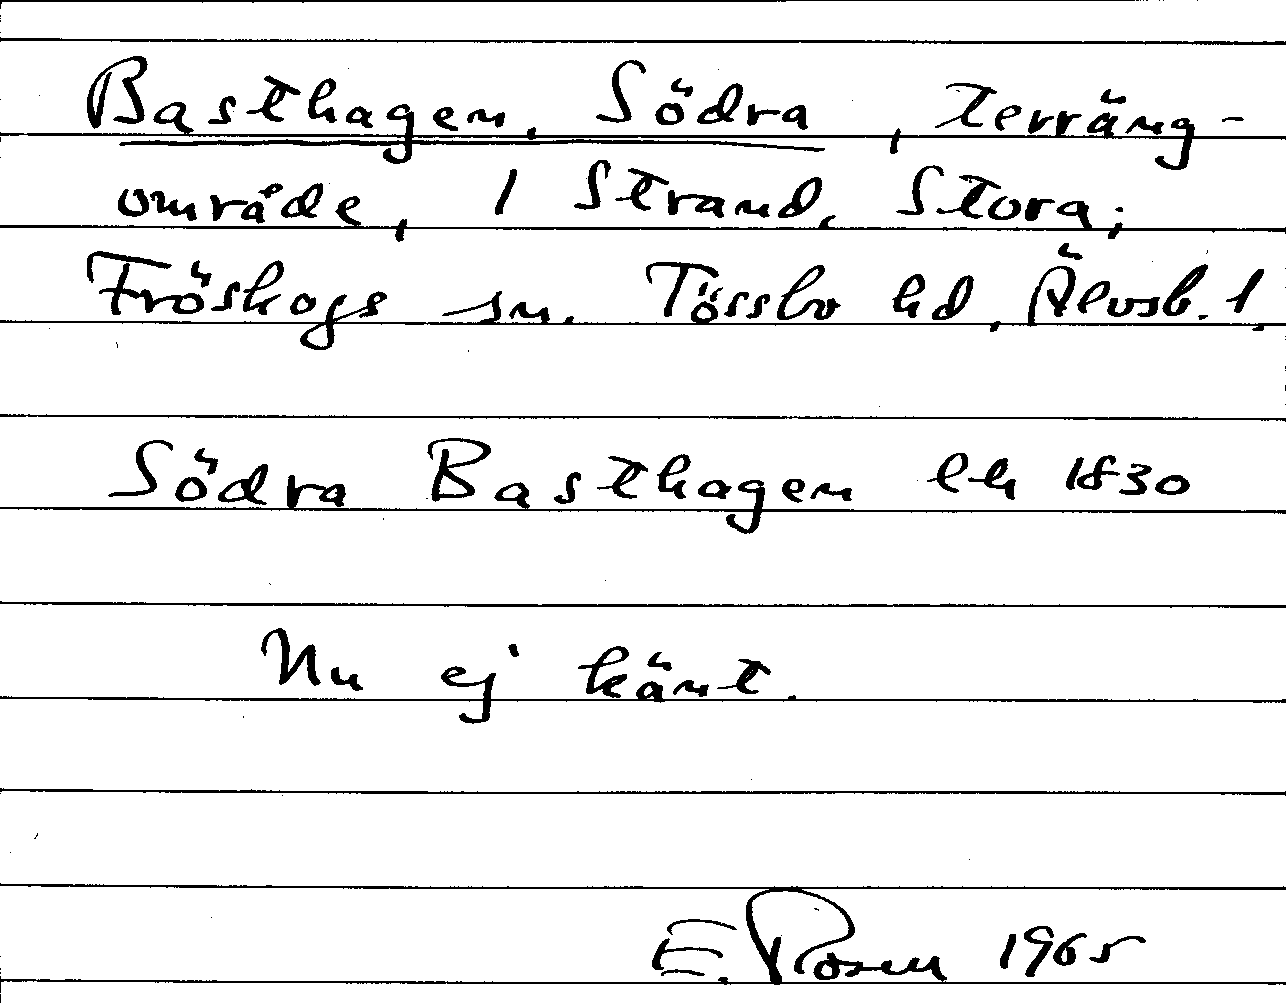 Basthagen, Södra, terräng-
område, 1 Strand, Stora;
Fröskogs sn. Tössbo hd, Älvsb. l.
Södra Basthagen lh 1830
Nu ej känt.
E. Rosen 1965